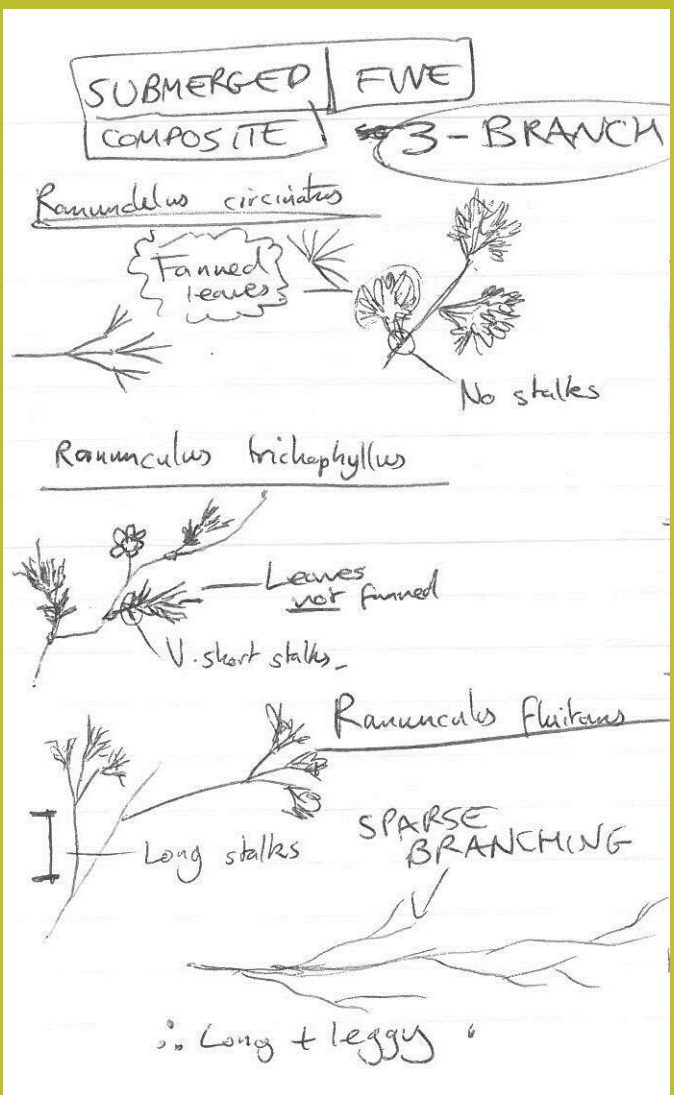 SUBMERGED FINE
COMPOSITE 3-BRANCH
Ranunculus circinatus
Fanned
leaves
No stalks
Ranunculus trichophyllus
Leaves
not fanned
V. short stalks
Ranunculus fluitans
Long stalks
SPARSE
BRANCHING
∴ Long + leggy